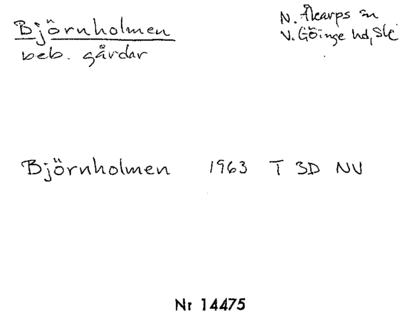 Björnholmen
beb. gårdar
N. Åkarps sn
V. Göinge hd, Sk
Björnholmen 1963 T 3D NV
Nr 14475